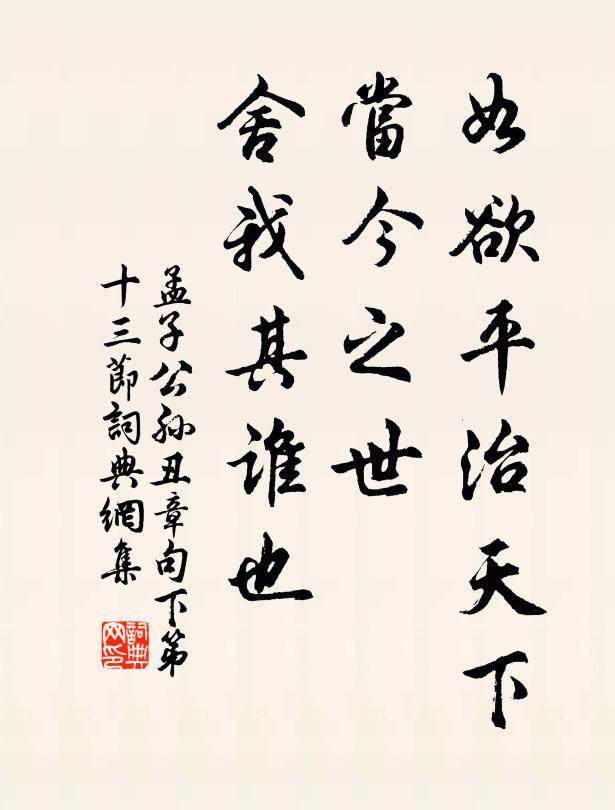 如欲平治天下
當今之世
舍我其誰也
孟子公孫丑章句下第
十三節詞典網集
詞典
网印